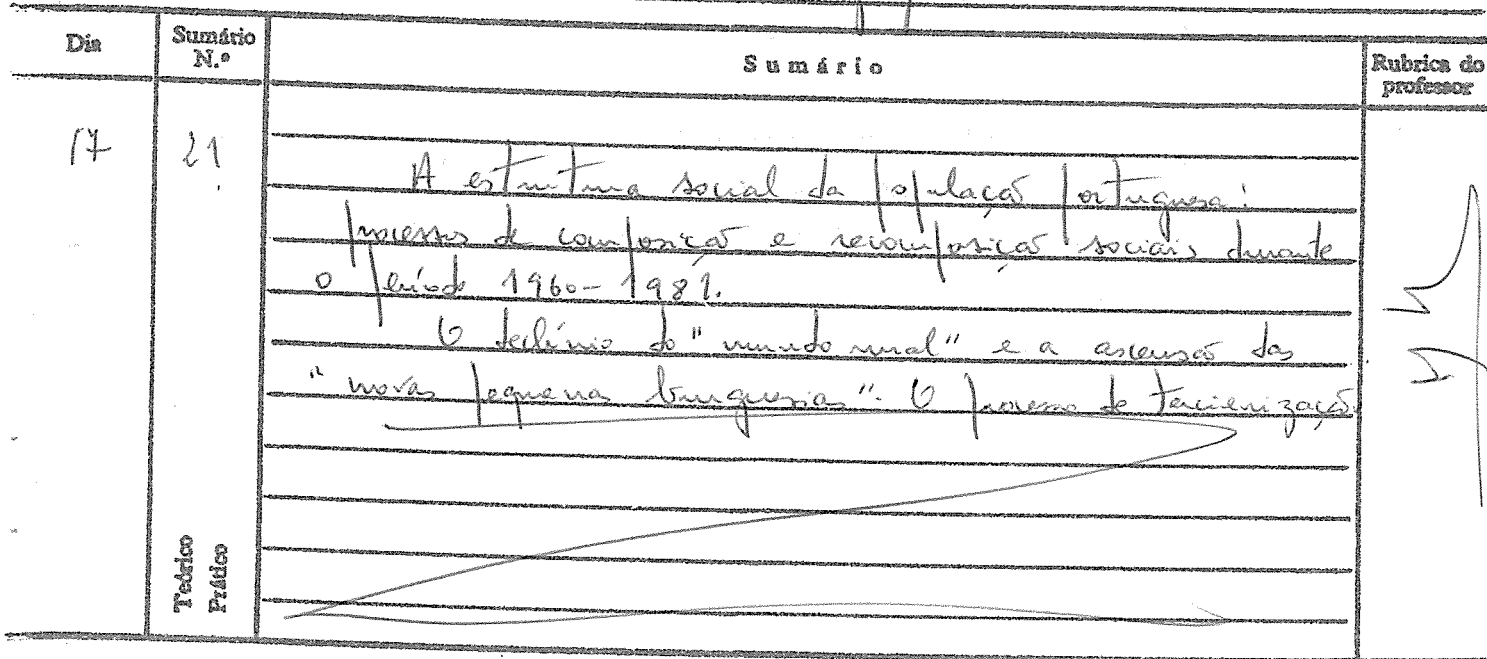 Dia Sumário N.º Sumário Rubrica do professor
17 21
A estrutura social da população portuguesa:
processos de composição e recomposição sociais durante
o período 1960-1981.
O declínio do "mundo rural" e a ascensão das
"novas pequenas burguesias". O processo de terciarização.
Teórico
Prático